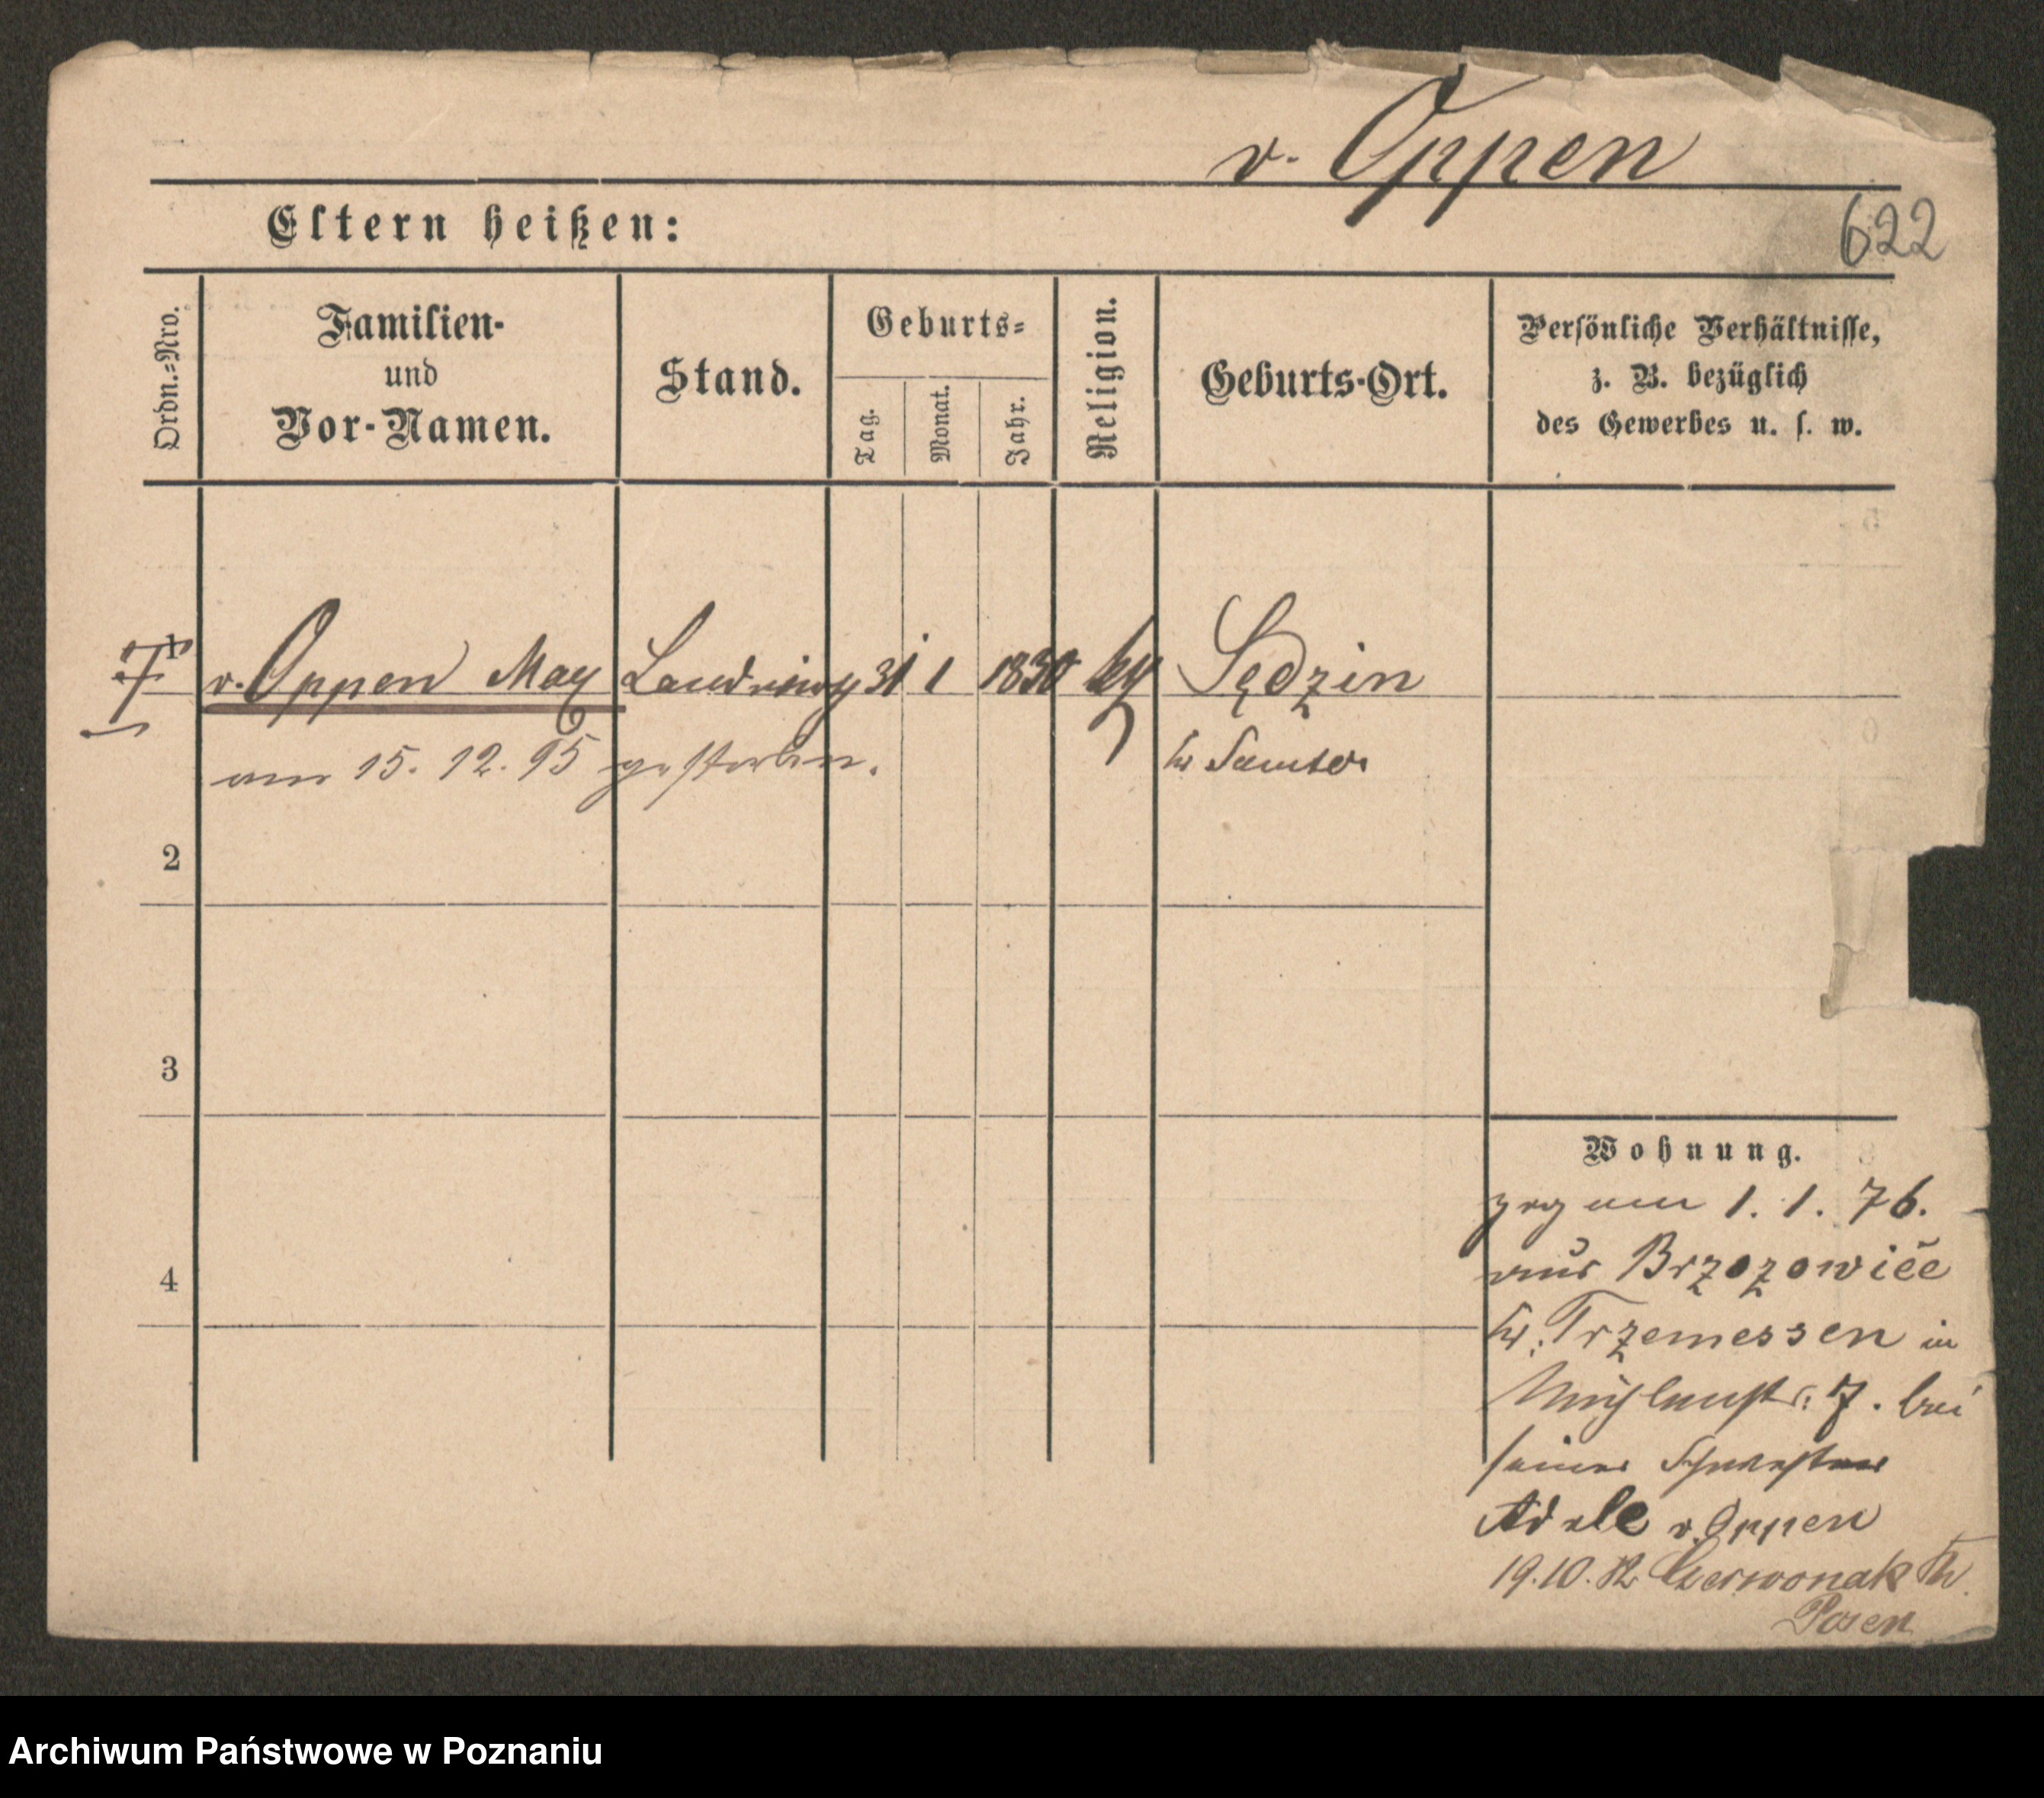 v. Oppen
622
Eltern heißen:
Ordn.-Nro.
Familien-
und
Vor-Namen.
Stand.
Geburts-
Tag.
Monat.
Jahr.
Religion.
Geburts-Ort.
Persönliche Verhältnisse,
z. B. bezüglich
des Gewerbes u. s. w.
1 v. Oppen Max 31 1 1830 Sędzin
am 15. 12. 95 gestorben. Kr Samter
2
3
4
Wohnung.
zog am 1. 1. 76.
aus
Kr. Trzemessen in
Mühlenstr. 7. bei
seiner Schwester
Adele v. Oppen
19.10. Czerwonak Kr.
Posen
Archiwum Państwowe w Poznaniu